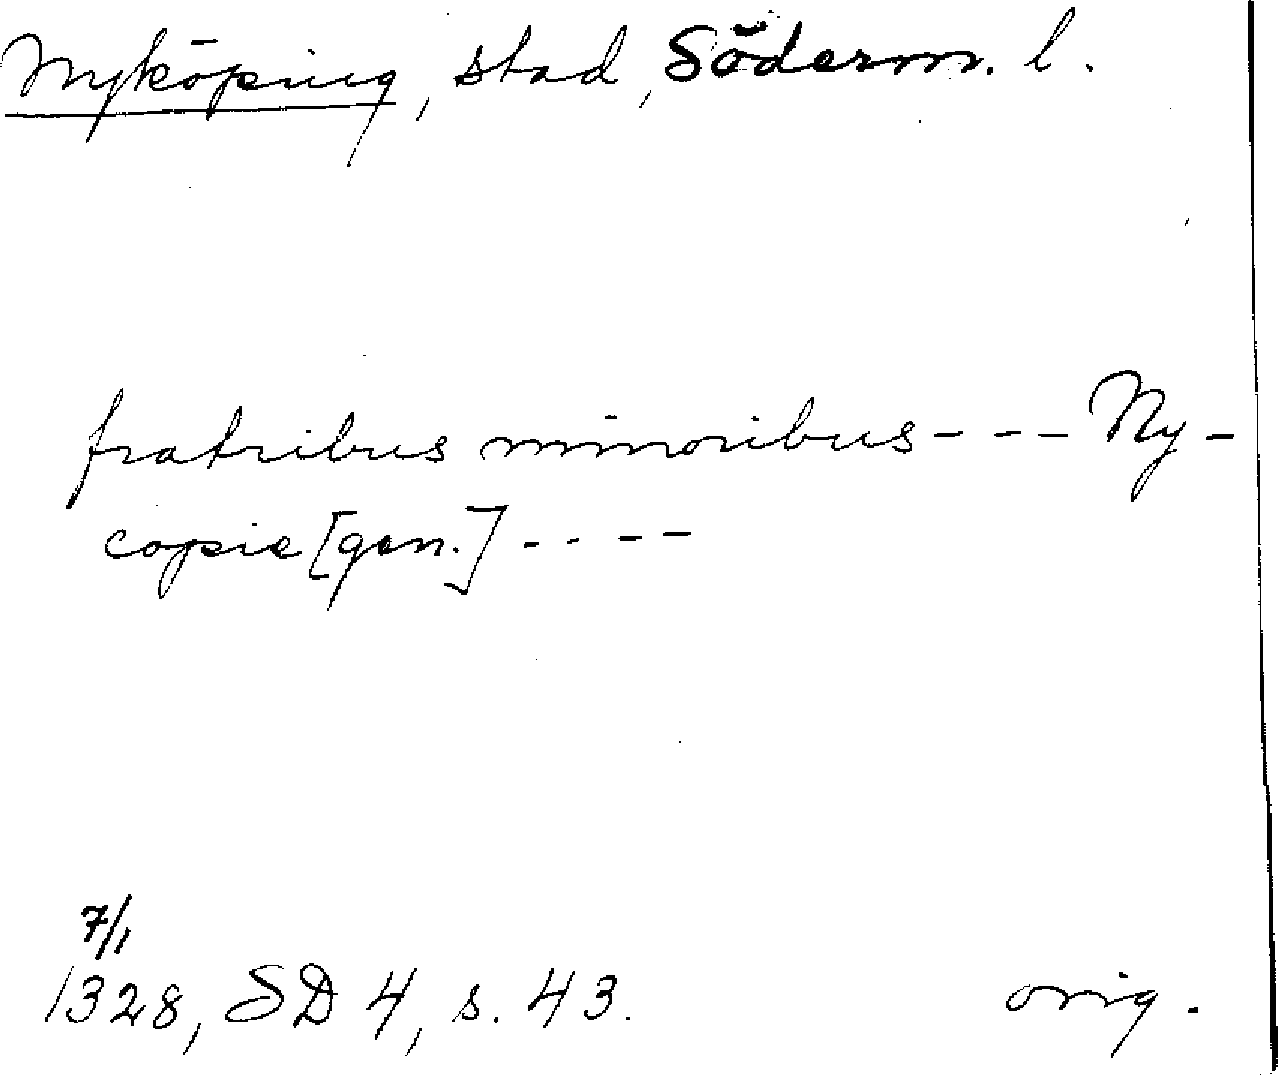 Nyköping, stad, Söderm. l.
fratribus minoribus - - - Ny-
copie [gen.] - - - -
7/1
1328, SD 4, s. 43. orig.